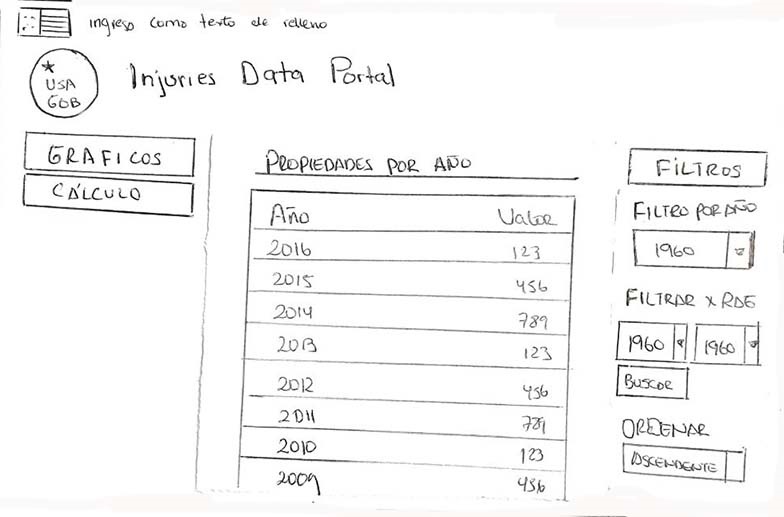 ingreso como texto de relleno
USA
GOB
Injuries Data Portal
GRAFICOS
CÁLCULO
PROPIEDADES POR AÑO
Año Valor
2016 123
2015 456
2014 789
2013 123
2012 456
2011 789
2010 123
2009 456
FILTROS
FILTRO POR AÑO
1960
FILTRAR X
1960 1960
BUSCAR
ORDENAR
ASCENDENTE